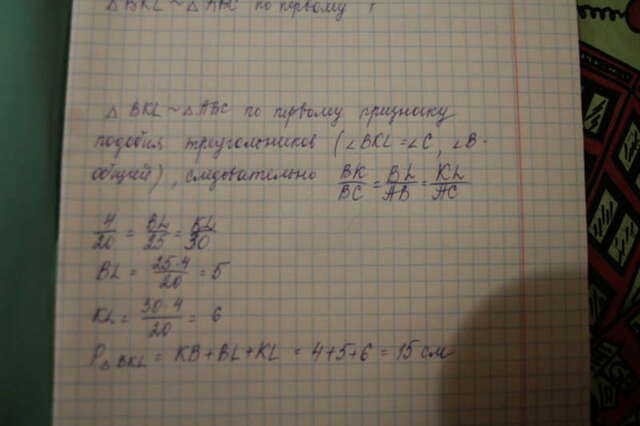 △ BKL ~ △ ABC по первому
△ BKL ~ △ ABC по первому признаку
подобия треугольников (∠BKL = ∠C, ∠B -
общий), следовательно BK/BC = BL/AB = KL/AC
4/20 = BL/25 = KL/30
BL = 25·4/20 = 5
KL = 30·4/20 = 6
P△BKL = KB + BL + KL = 4+5+6 = 15 см